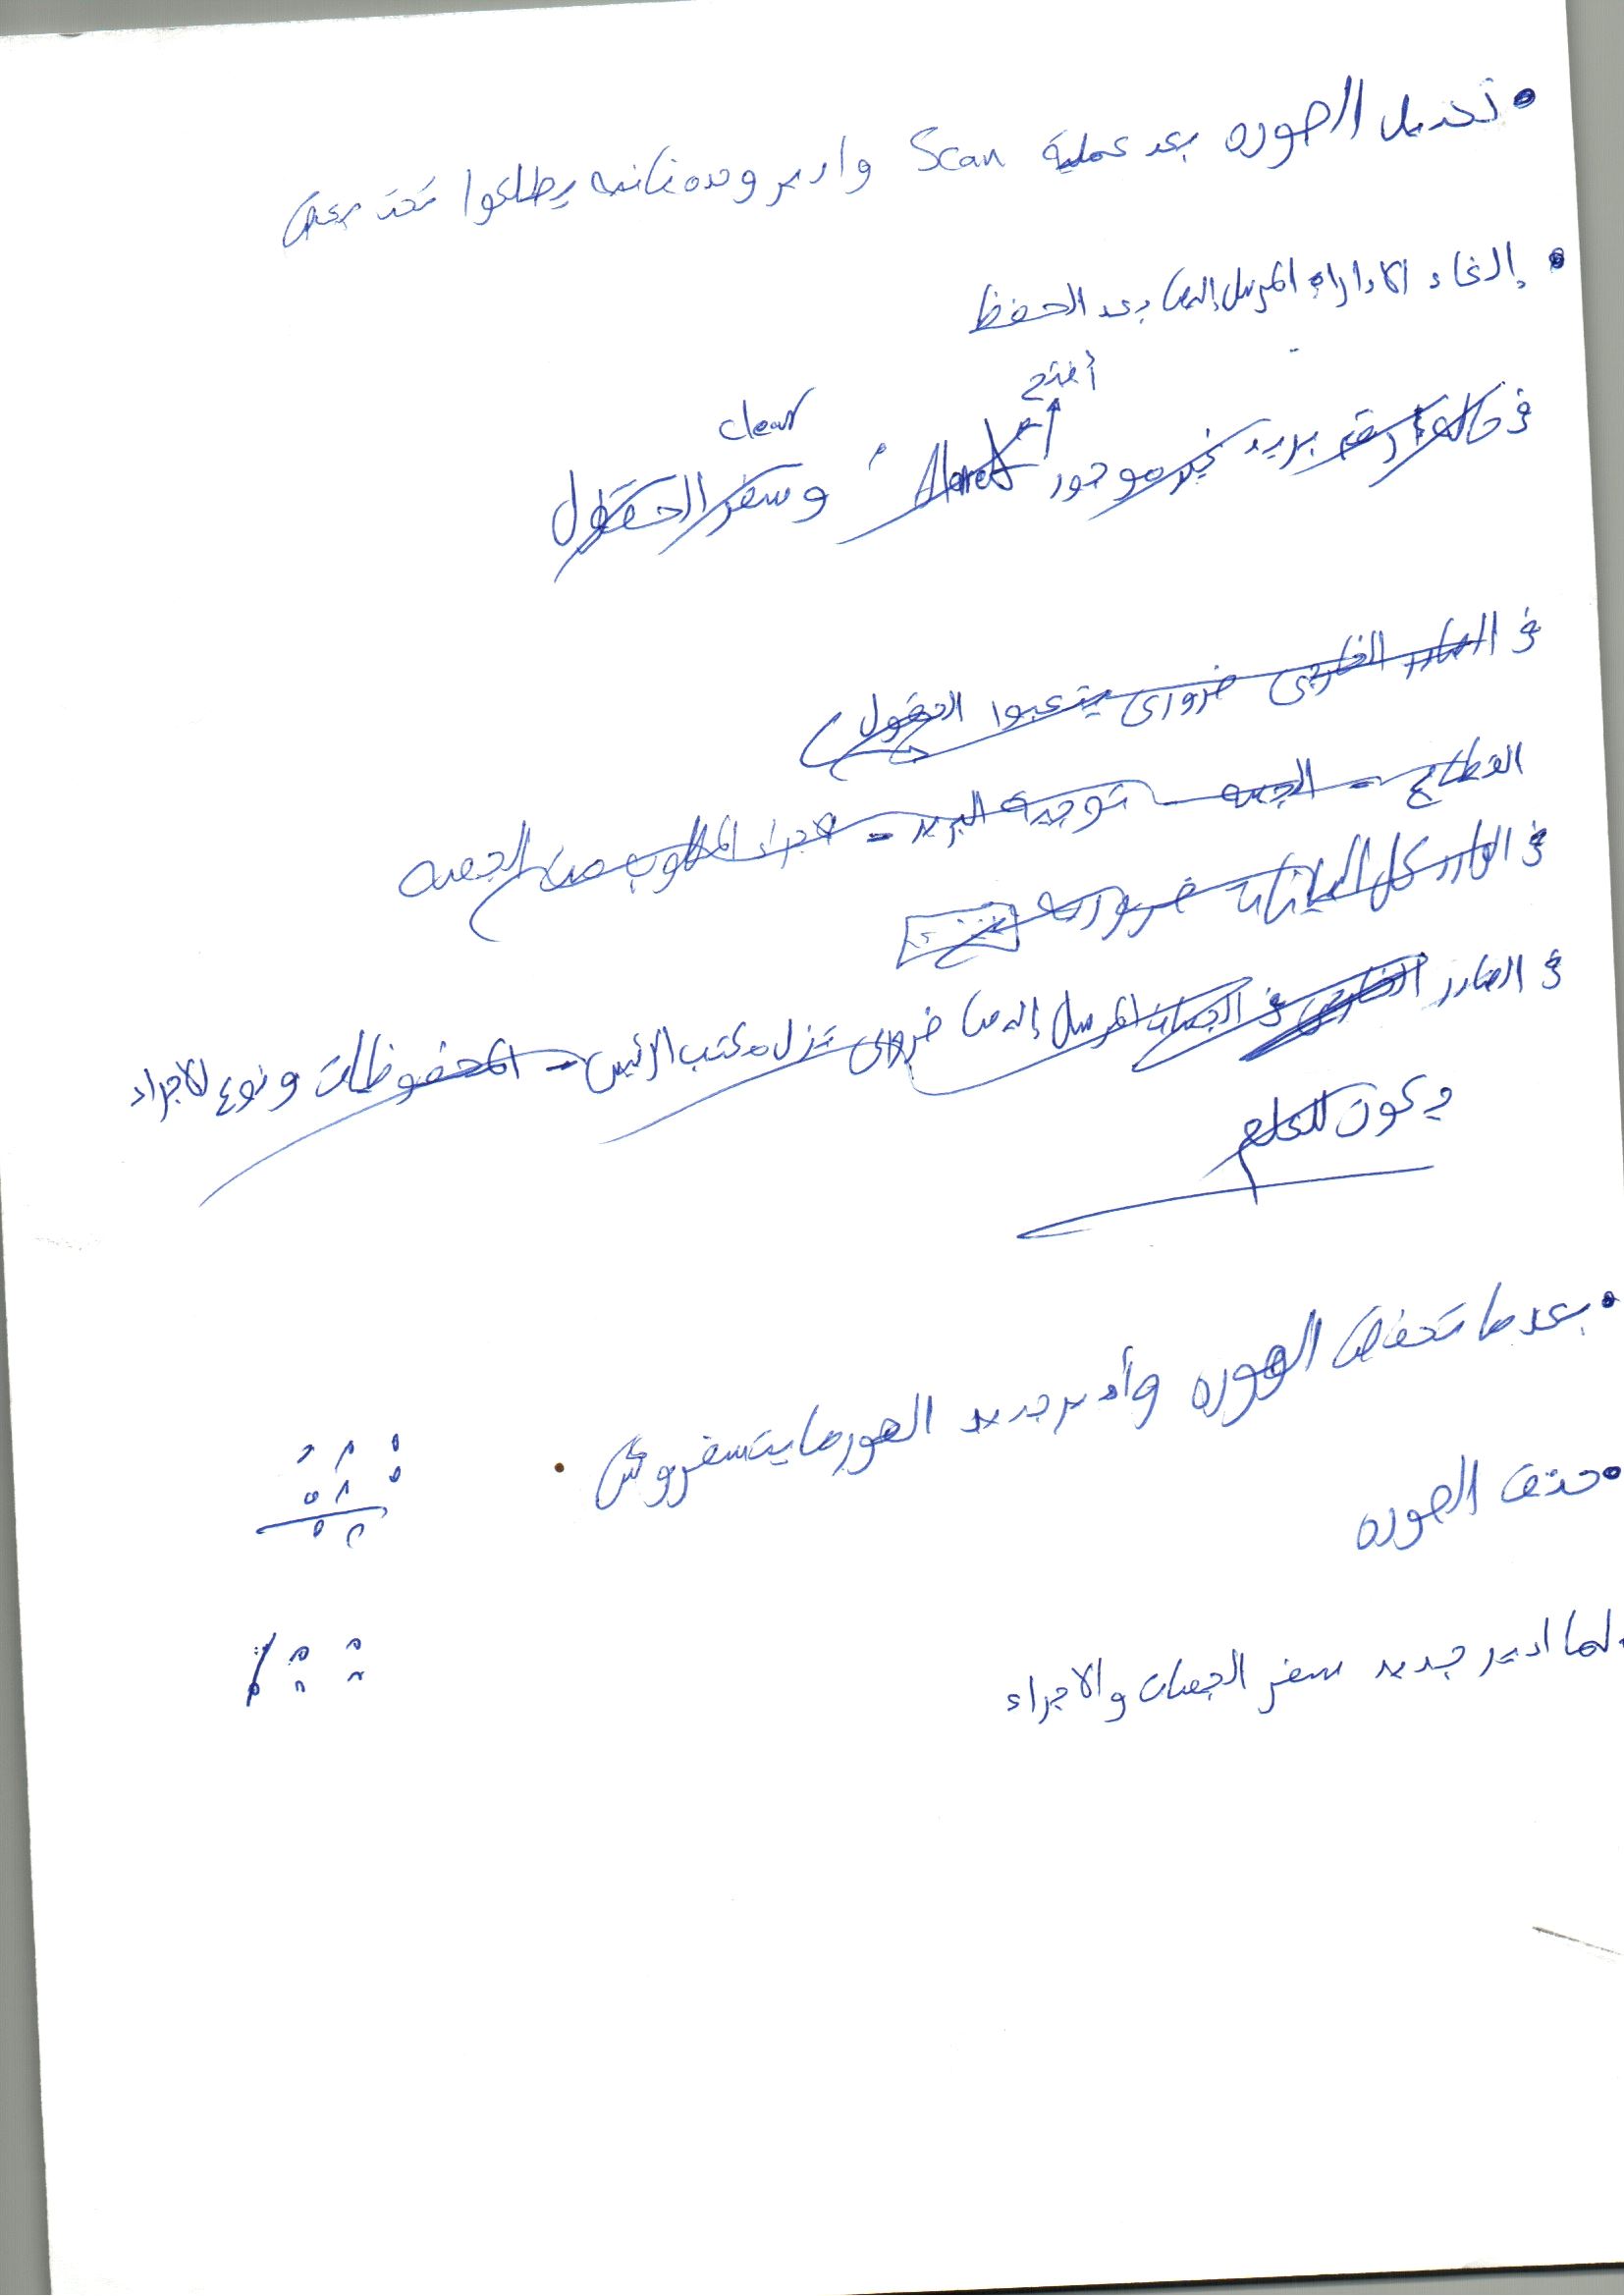 • تعديل الصوره بعد عملية Scan وادير وحده ثانيه يطلعوا تحت بعض
• إلغاء الادارات المرسل إليها بعد الحفظ
أفتح
clear
في حالة رقم بريد غير موجود وسفر الحقول
في الصادر الخارجي ضروري يتعبوا الحقول
القطاع - الجهه - توجيه البريد - الاجراء المطلوب من الجهه
في الوارد كل البيانات ضروريه
في الصادر الخارجي في الجهات المرسل إليها ضروري تنزل مكتب الرئيس - المحفوظات ونوع الاجراء
يكون للعلم
• بعدما تحفظ الصوره وأدير جديد الصور ما يتسفروش
• حذف الصوره
. لما ادير جديد سفر الجهات والاجراء